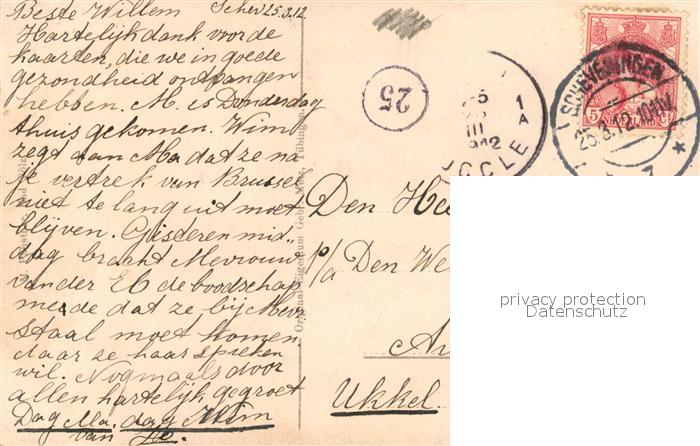 Beste Willem Schev 25.3.12
Hartelijk dank voor de
kaarten, die we in goede
gezondheid ontvangen
hebben. M. is Donderdag
thuis gekomen. Wim
zegt aan Ma dat ze na
je vertrek van Brussel
niet te lang uit moet
blijven. Gisteren mid„
dag bracht Mevrouw
van der El de boodschap
mede dat ze bij Mevr
staal moet komen
daar ze haar spreken
wil. Nogmaals door
allen hartelijk gegroet
Dag Ma, dag Wim
van
Original-Eigentum Gebr. Metz, Tübingen
25
1
A
III
1912
UCCLE
SCHEVENINGEN
25.3.12.
5
Den Hee
p/a Den We
Ukkel.
privacy protection
Datenschutz